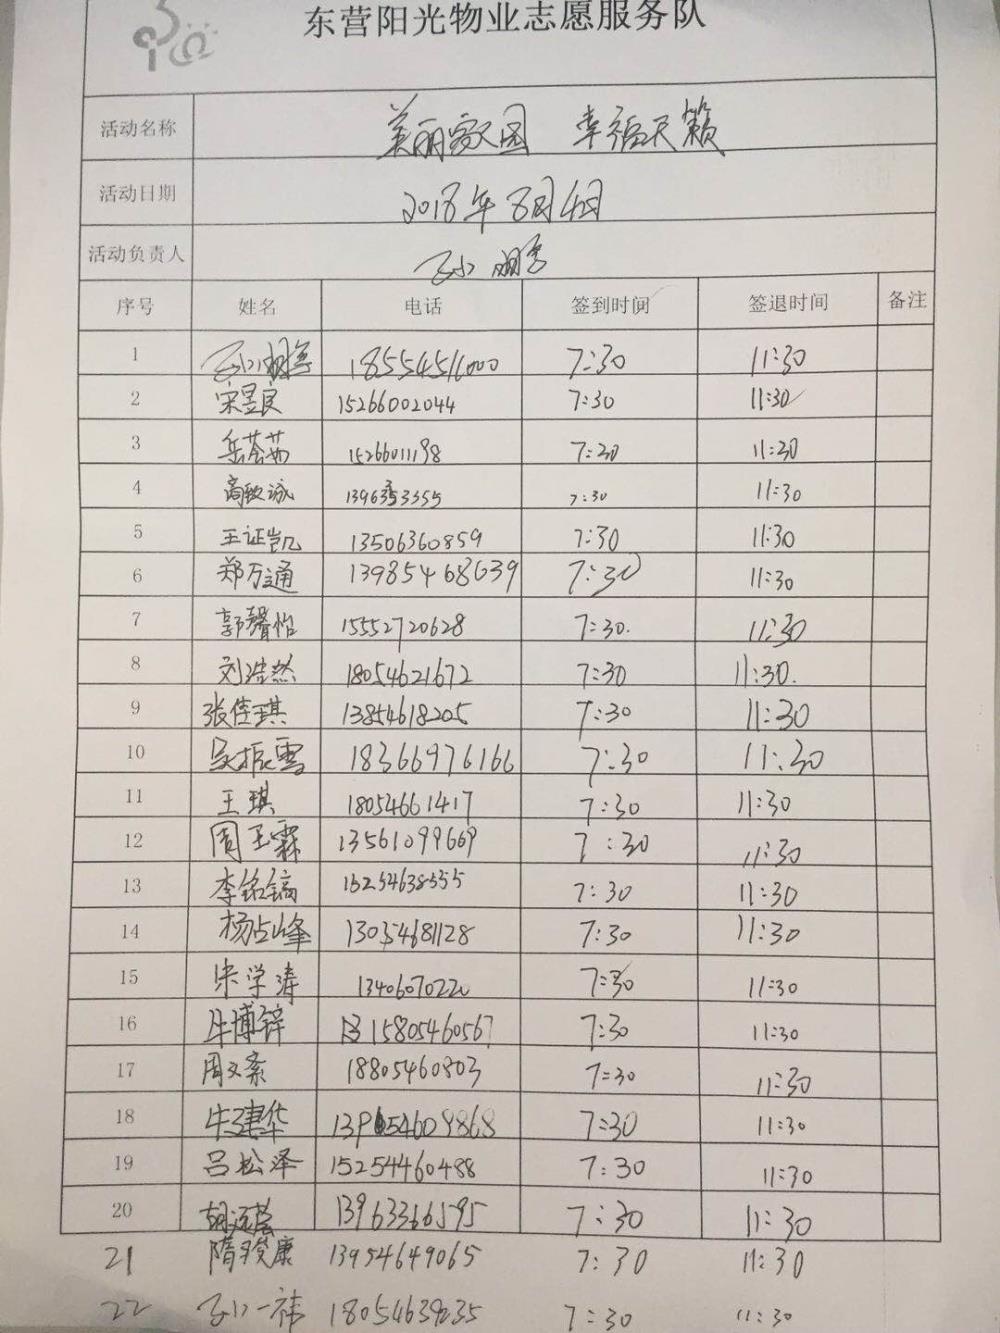 东营阳光物业志愿服务队
活动名称 美丽家园 幸福天籁
活动日期 2018年8月4日
活动负责人 孙明
序号 姓名 电话 签到时间 签退时间 备注
1 孙 18554516000 7:30 11:30
2 宋昱良 15266002044 7:30 11:30
3 岳荟茹 1526601198 7:30 11:30
4 高致诚 7:30 11:30
5 王证凯 13506360859 7:30 11:30
6 郑万通 13985468639 7:30 11:30
7 郭馨怡 15552720628 7:30. 11:30
8 刘浩然 18054621672 7:30 11:30.
9 张佳琪 13854618205 7:30 11:30
10 吴振雪 18366976166 7:30 11:30
11 王琪 18054661417 7:30 11:30
12 周玉霖 13561099669 7:30 11:30
13 李铭镐 15254638555 7:30 11:30
14 杨占峰 13054681128 7:30 11:30
15 宋学涛 13406070220 7:30 11:30
16 牛博锌 15805460567 7:30 11:30
17 周文 18805460803 7:30 11:30
18 牛建华 7:30 11:30
19 吕松泽 15254460488 7:30 11:30
20 胡 13963366595 7:30 11:30
21 隋骏康 13954649065 7:30 11:30
22 孙一祎 7:30 11:30